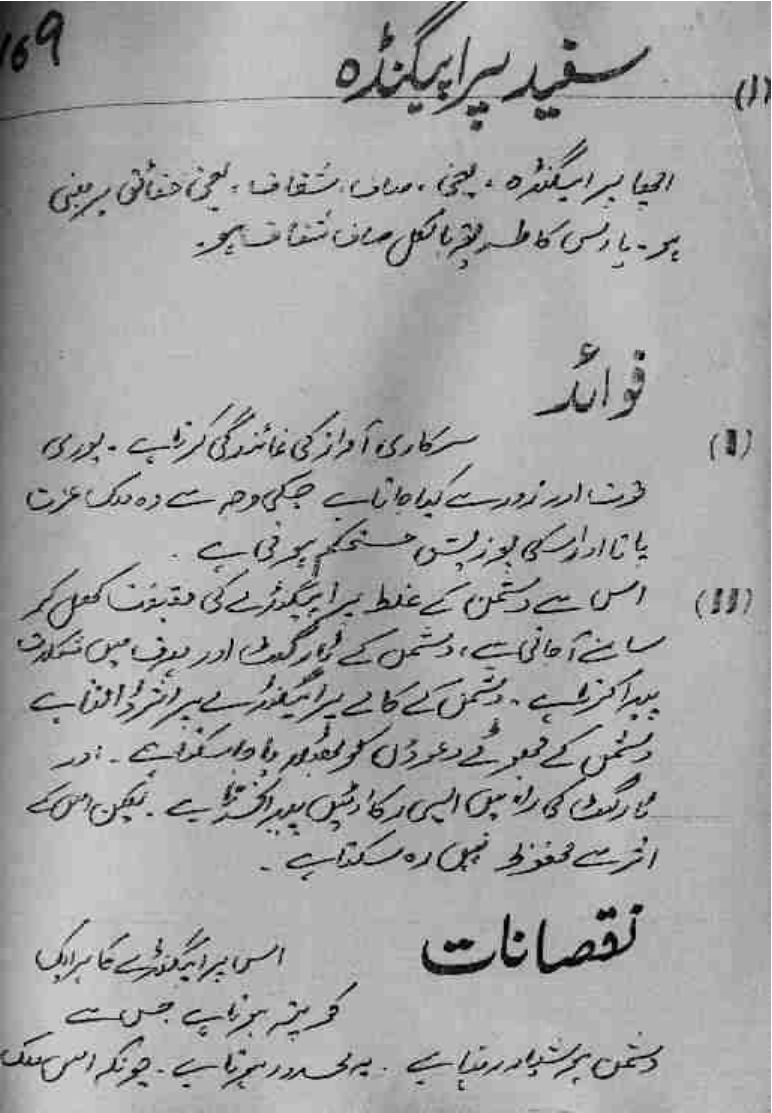 169
(1) سفید پراپیگنڈہ
اچھا پراپیگنڈہ ، یعنی ، صاف ، شفاف ، یعنی حقائق پر مبنی
ہو ۔ یا اس کا طریقہ بالکل صاف شفاف ہو ۔
فوائد
(I) سرکاری آواز کی نمائندگی کرتا ہے ۔ پوری
قوت اور زور سے کیا جاتا ہے جسکی وجہ سے وہ ملک عزت
پاتا اور اسکی پوزیشن مستحکم ہوتی ہے ۔
(II) اس سے دشمن کے غلط پراپیگنڈے کی حقیقت کھل کر
سامنے آجاتی ہے ، دشمن کے ٹارگٹ اور ہدف میں مشکلات
پیدا کرتا ہے ۔ دشمن کے کالے پراپیگنڈے پر اثر ڈالتا ہے
دشمن کے جھوٹے دعوؤں کو جھٹلایا جاسکتا ہے ۔ اور
ٹارگٹ کی راہ میں ایسی رکاوٹیں پیدا کرتا ہے ۔ لیکن اس کے
اثر سے محفوظ نہیں رہ سکتا ہے ۔
نقصانات
اس پراپیگنڈے کا ہر ایک
طریقہ ہوتا ہے جس سے
دشمن ہوشیار رہتا ہے ۔ یہ محدود ہوتا ہے ۔ چونکہ اس ملک